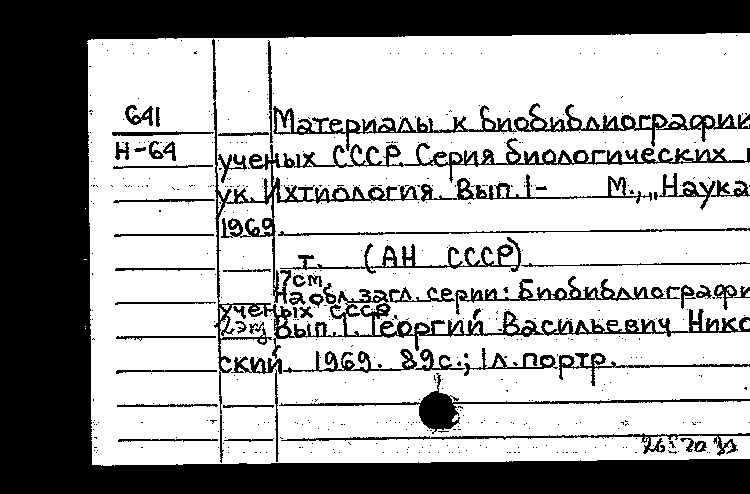 641
Н-64
Материалы к биобиблиографии
ученых СССР. Серия биологических
ук. Ихтиология. Вып. 1- М., „Наука
1969.
т. (АН СССР).
17см.
На обл. загл. серии: Биобиблиографи
ученых СССР.
2экз Вып. 1. Георгий Васильевич Нико
ский. 1969. 89с.; 1л. портр.